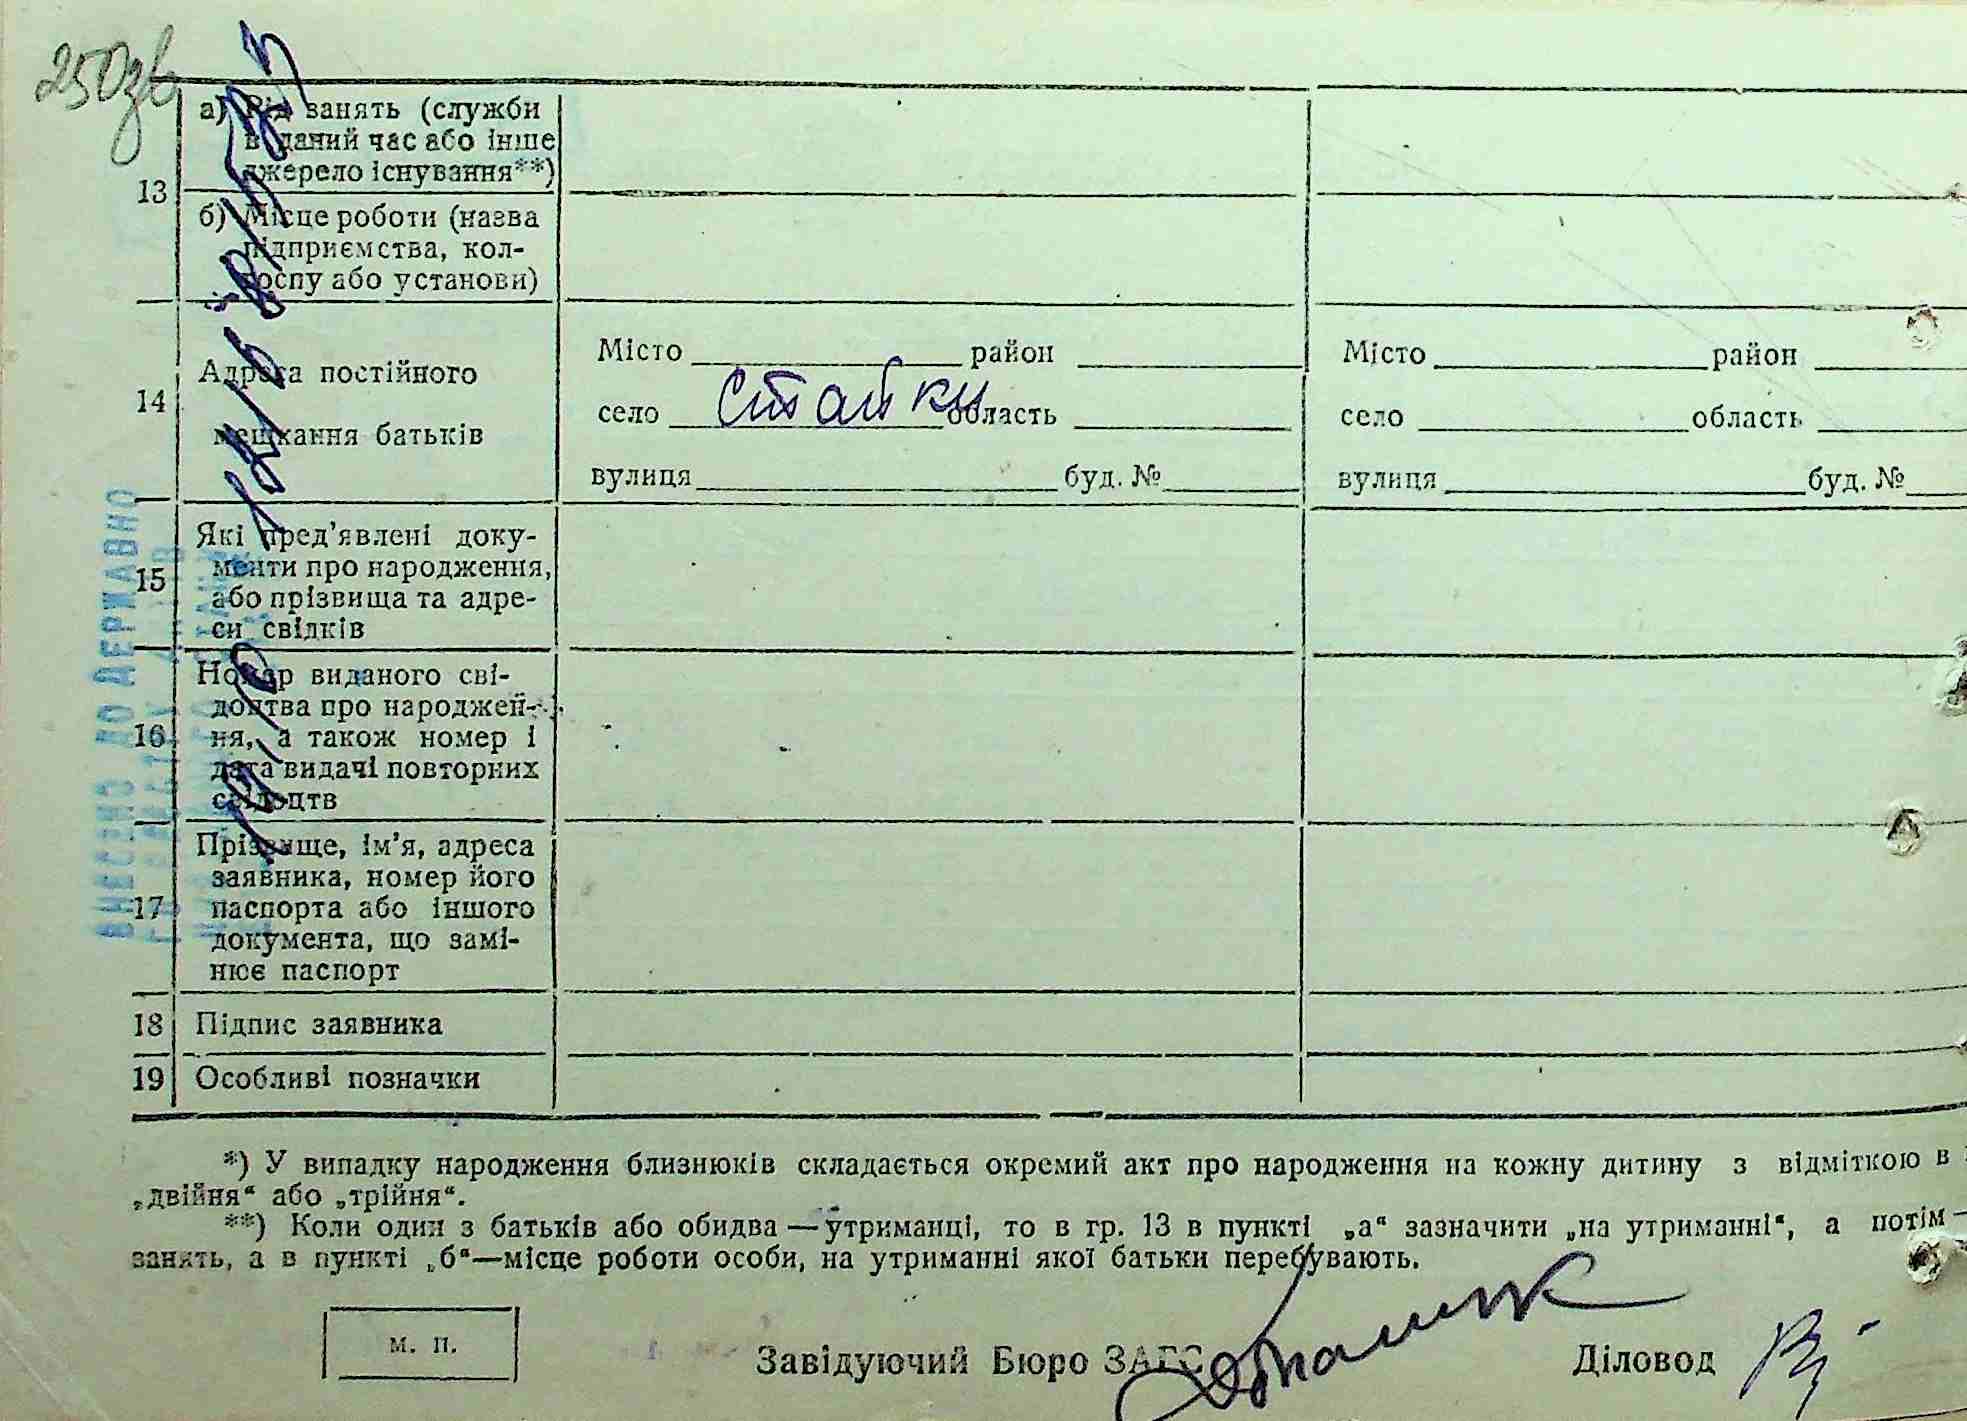 250зв
13
а) Рід занять (служби
в даний час або інше
джерело існування**)
б) Місце роботи (назва
підприємства, кол-
госпу або установи)
14
Адреса постійного
мешкання батьків
Місто район
село Стайки область
вулиця буд. №
Місто район
село область
вулиця буд. №
15
Які пред'явлені доку-
менти про народження,
або прізвища та адре-
си свідків
16
Номер виданого сві-
доцтва про народжен-
ня, а також номер і
дата видачі повторних
свідоцтв
17
Прізвище, ім'я, адреса
заявника, номер його
паспорта або іншого
документа, що замі-
нює паспорт
18 Підпис заявника
19 Особливі позначки
ВНЕСЕНО ДО ДЕРЖАВНО
*) У випадку народження близнюків складається окремий акт про народження на кожну дитину з відміткою в
„двійня“ або „трійня“.
**) Коли один з батьків або обидва—утриманці, то в гр. 13 в пункті „а“ зазначити „на утриманні“, а потім—
занять, а в пункті „б“—місце роботи особи, на утриманні якої батьки перебувають.
м. п.
Завідуючий Бюро ЗАГС
Діловод